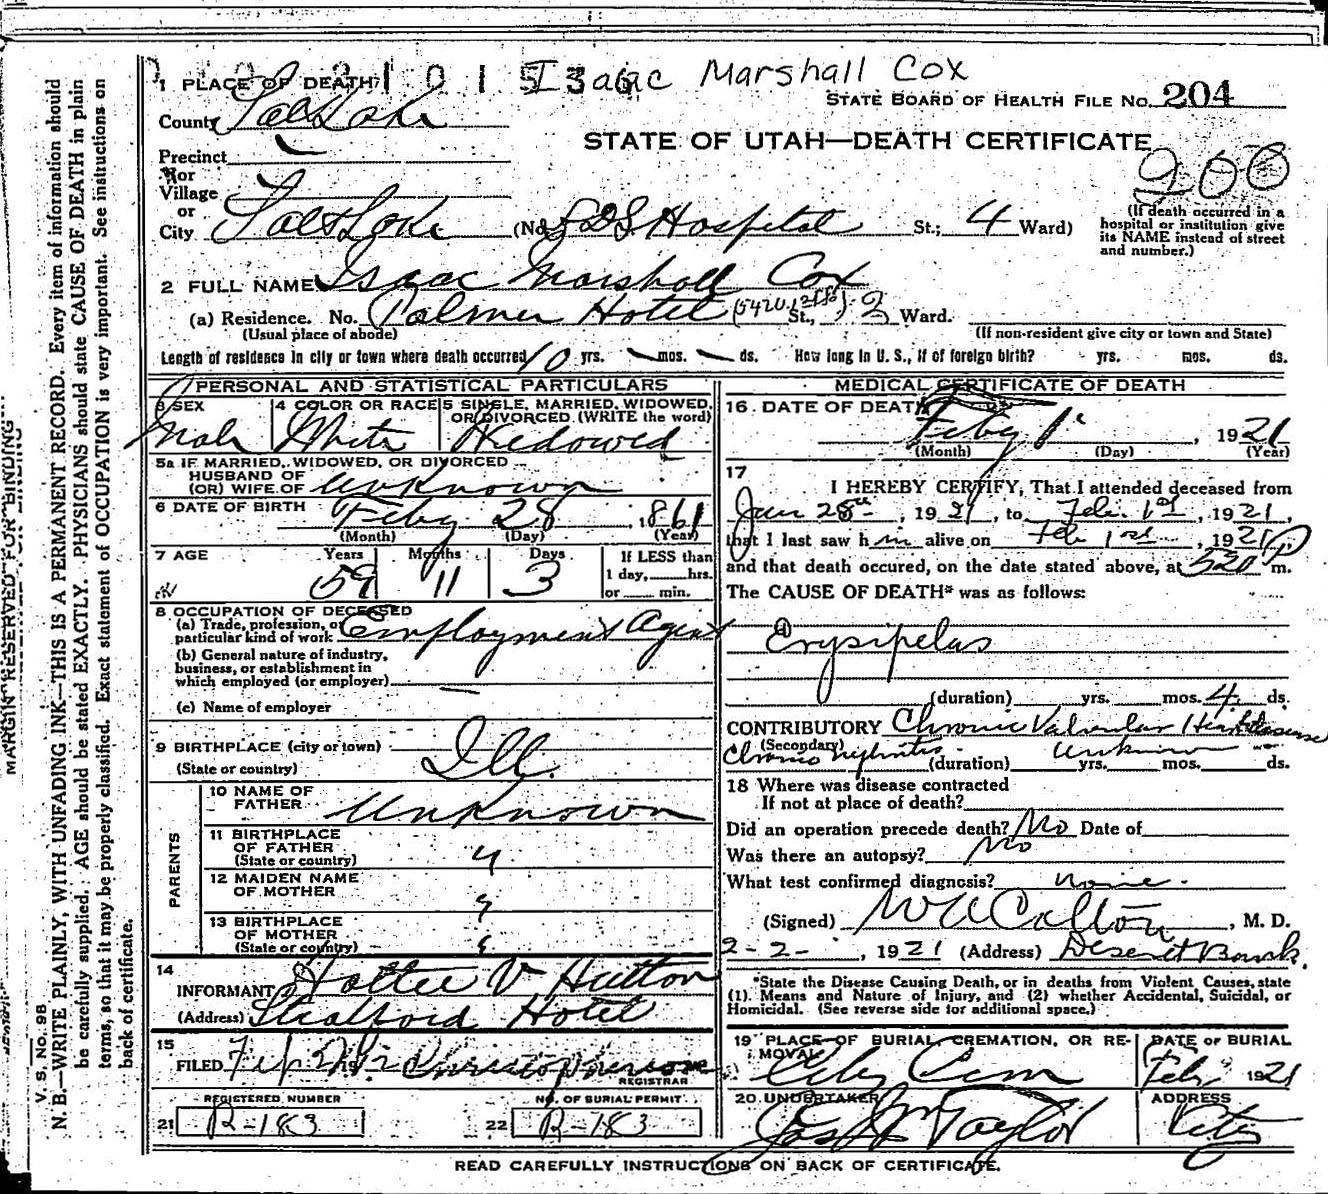 Isaac Marshall Cox
1 PLACE OF DEATH
STATE BOARD OF HEALTH FILE No. 204
County Salt Lake
STATE OF UTAH—DEATH CERTIFICATE
Precinct
or
Village
200
or
City Salt Lake (No. LDS Hospital St.; 4 Ward)
(If death occurred in a hospital or institution give its NAME instead of street and number.)
2 FULL NAME Isaac Marshall Cox
(a) Residence. No. Palmer Hotel St., 2 Ward.
(Usual place of abode) (If non-resident give city or town and State)
Length of residence in city or town where death occurred 10 yrs. — mos. — ds. How long in U. S., if of foreign birth? yrs. mos. ds.
PERSONAL AND STATISTICAL PARTICULARS
3 SEX 4 COLOR OR RACE 5 SINGLE, MARRIED, WIDOWED, OR DIVORCED (WRITE the word)
Male White Widowed
5a IF MARRIED, WIDOWED, OR DIVORCED
HUSBAND OF
(OR) WIFE OF Unknown
6 DATE OF BIRTH Feby 28, 1861
(Month) (Day) (Year)
7 AGE Years Months Days If LESS than
59 11 3 1 day, hrs.
or min.
8 OCCUPATION OF DECEASED
(a) Trade, profession, or
particular kind of work Employment Agent
(b) General nature of industry,
business, or establishment in
which employed (or employer) —
(c) Name of employer
9 BIRTHPLACE (city or town)
(State or country) Ill.
PARENTS
10 NAME OF
FATHER Unknown
11 BIRTHPLACE
OF FATHER
(State or country) "
12 MAIDEN NAME
OF MOTHER "
13 BIRTHPLACE
OF MOTHER
(State or country) "
14
INFORMANT Hattie V Hutton
(Address) Stratford Hotel
15
FILED Christopherson
REGISTRAR
REGISTERED NUMBER NO. OF BURIAL PERMIT
21 R-183 22 R-183
MEDICAL CERTIFICATE OF DEATH
16 DATE OF DEATH
Feby 1, 1921
(Month) (Day) (Year)
17
I HEREBY CERTIFY, That I attended deceased from
Jan 28th, 1921, to Feb. 1st, 1921,
that I last saw him alive on Feb 1st, 1921,
and that death occured, on the date stated above, at 520 P m.
The CAUSE OF DEATH* was as follows:
Erysipelas
(duration) yrs. mos. 4 ds.
CONTRIBUTORY Chronic Valvular Heart disease
(Secondary)
Chronic Nephritis (duration) unknown yrs. mos. ds.
18 Where was disease contracted
If not at place of death?
Did an operation precede death? No Date of
Was there an autopsy? No
What test confirmed diagnosis? none.
(Signed) M. D.
2-2-, 1921 (Address) Deseret Bank.
*State the Disease Causing Death, or in deaths from Violent Causes, state
(1) Means and Nature of Injury, and (2) whether Accidental, Suicidal, or
Homicidal. (See reverse side for additional space.)
19 PLACE OF BURIAL, CREMATION, OR RE-
MOVAL City Cem
DATE OF BURIAL
Feb, 1921
20 UNDERTAKER Jos Wm Taylor
ADDRESS
City
READ CAREFULLY INSTRUCTIONS ON BACK OF CERTIFICATE.
MARGIN RESERVED FOR BINDING
V. S. No. 98
N. B.—WRITE PLAINLY, WITH UNFADING INK—THIS IS A PERMANENT RECORD. Every item of information should
be carefully supplied. AGE should be stated EXACTLY. PHYSICIANS should state CAUSE OF DEATH in plain
terms, so that it may be properly classified. Exact statement of OCCUPATION is very important. See instructions on
back of certificate.